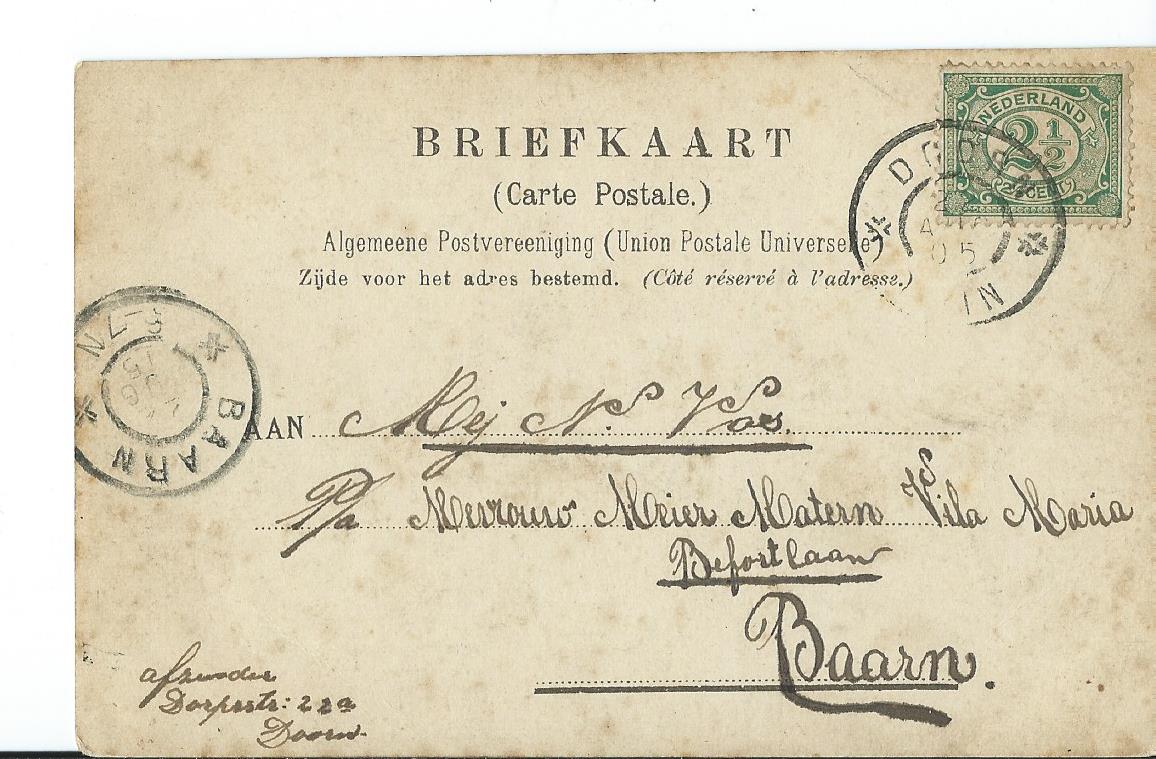 BRIEFKAART
(Carte Postale.)
Algemeene Postvereeniging (Union Postale Universelle)
Zijde voor het adres bestemd. (Côté réservé à l'adresse.)
NEDERLAND
2½
CENT
DOORN
05
BAARN
AAN Mej N. Vos.
P/a Mevrouw Meier Matern Villa Maria
Befortlaan
Baarn.
afzender
Dorpsstr: 22a
Doorn